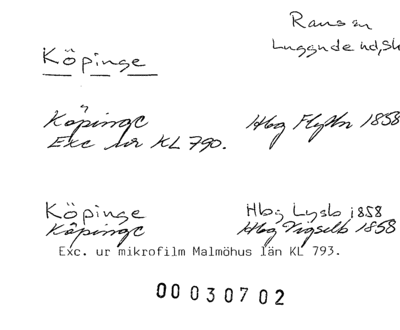 Köpinge
Köpinge Hbg Flyttn 1858
Exc ur KL 790.
Köpinge Hbg Lysb 1858
Köpinge Hbg Vigselb 1858
Exc. ur mikrofilm Malmöhus län KL 793.
00030702